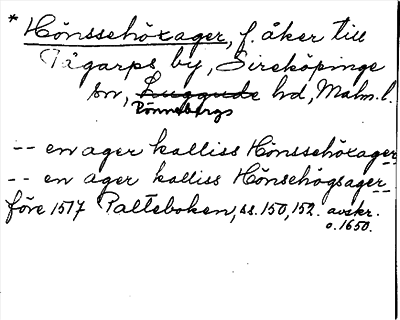 * Hönssehöxager, f. åker till
Tågarps by, Sireköpinge
sn, Luggude hd, Malm. l.
Rönnebergs
-- en ager kalliss Hönssehöxager
-- en ager kalliss Hönsehögsager
före 1517 Palteboken, ss. 150, 152. avskr.
o. 1650.